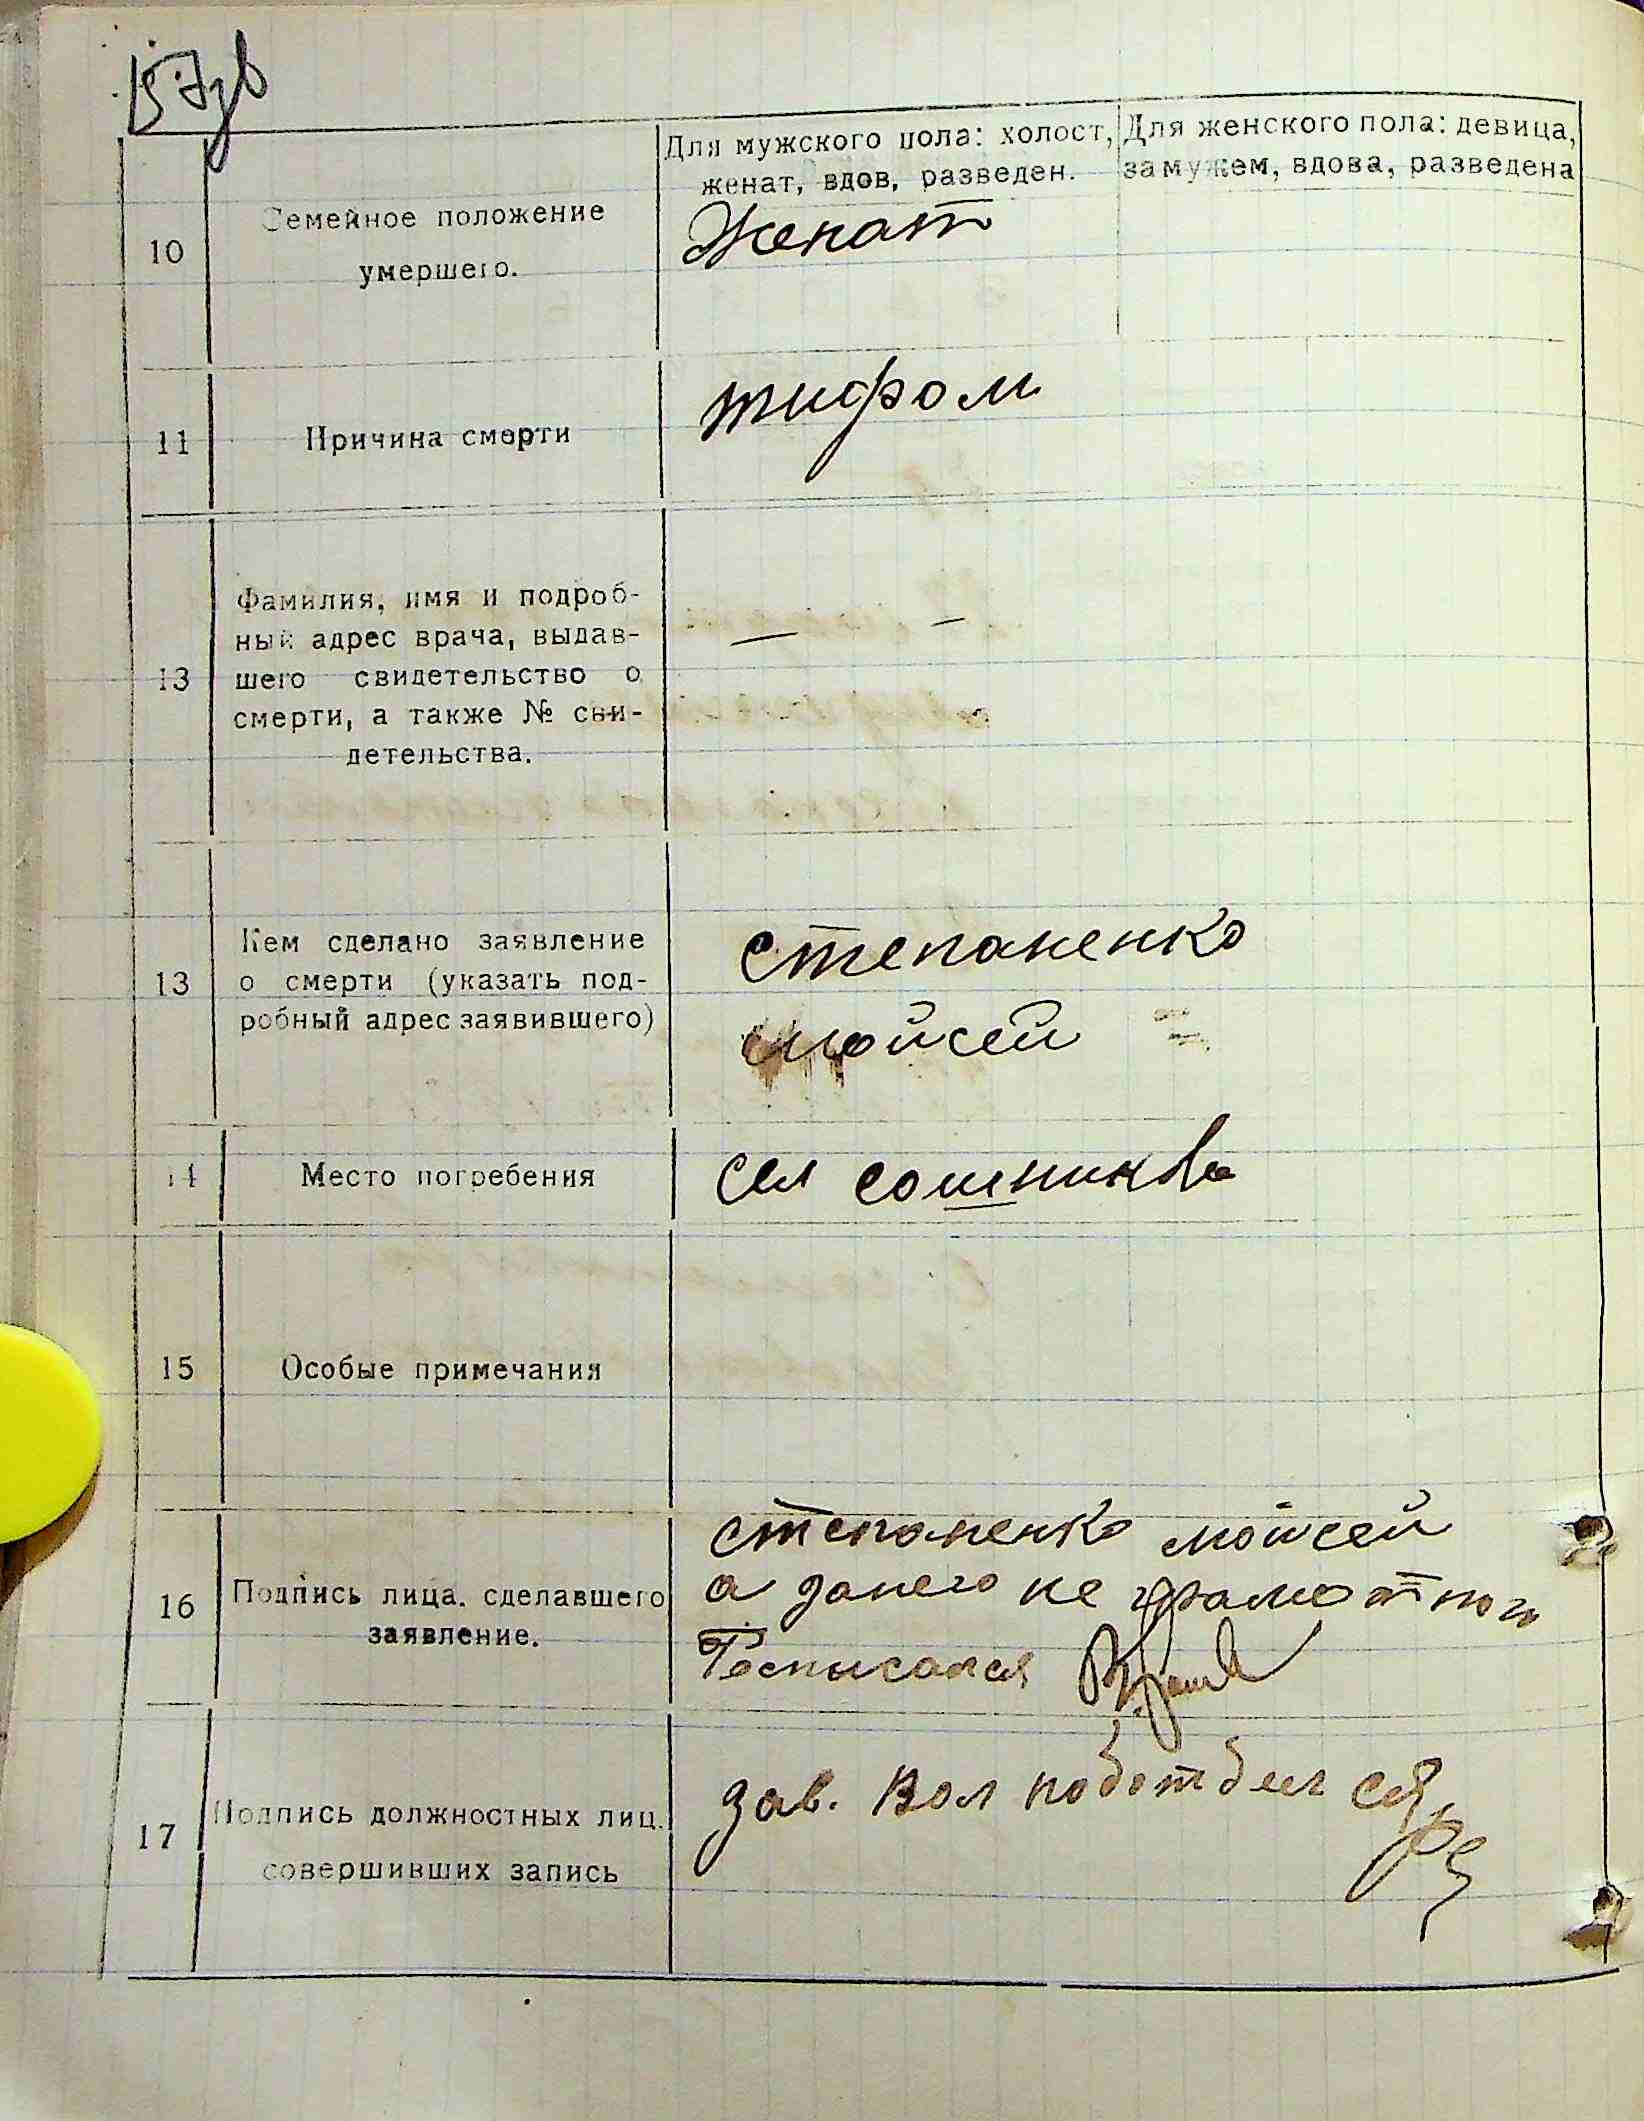 157 зв
Для мужского пола: холост,
женат, вдов, разведен.
Для женского пола: девица,
замужем, вдова, разведена
10
Семейное положение
умершего.
Женат
11
Причина смерти
тифом
13
Фамилия, имя и подроб-
ный адрес врача, выдав-
шего свидетельство о
смерти, а также № сви-
детельства.
— –
13
Кем сделано заявление
о смерти (указать под-
робный адрес заявившего)
степаненко
мойсей
14
Место погребения
сел сошников
15
Особые примечания
16
Подпись лица, сделавшего
заявление.
степаненко мойсей
а занего не грамотного
Росписался
17
Подпись должностных лиц.
совершивших запись
зав. Вол подотдел